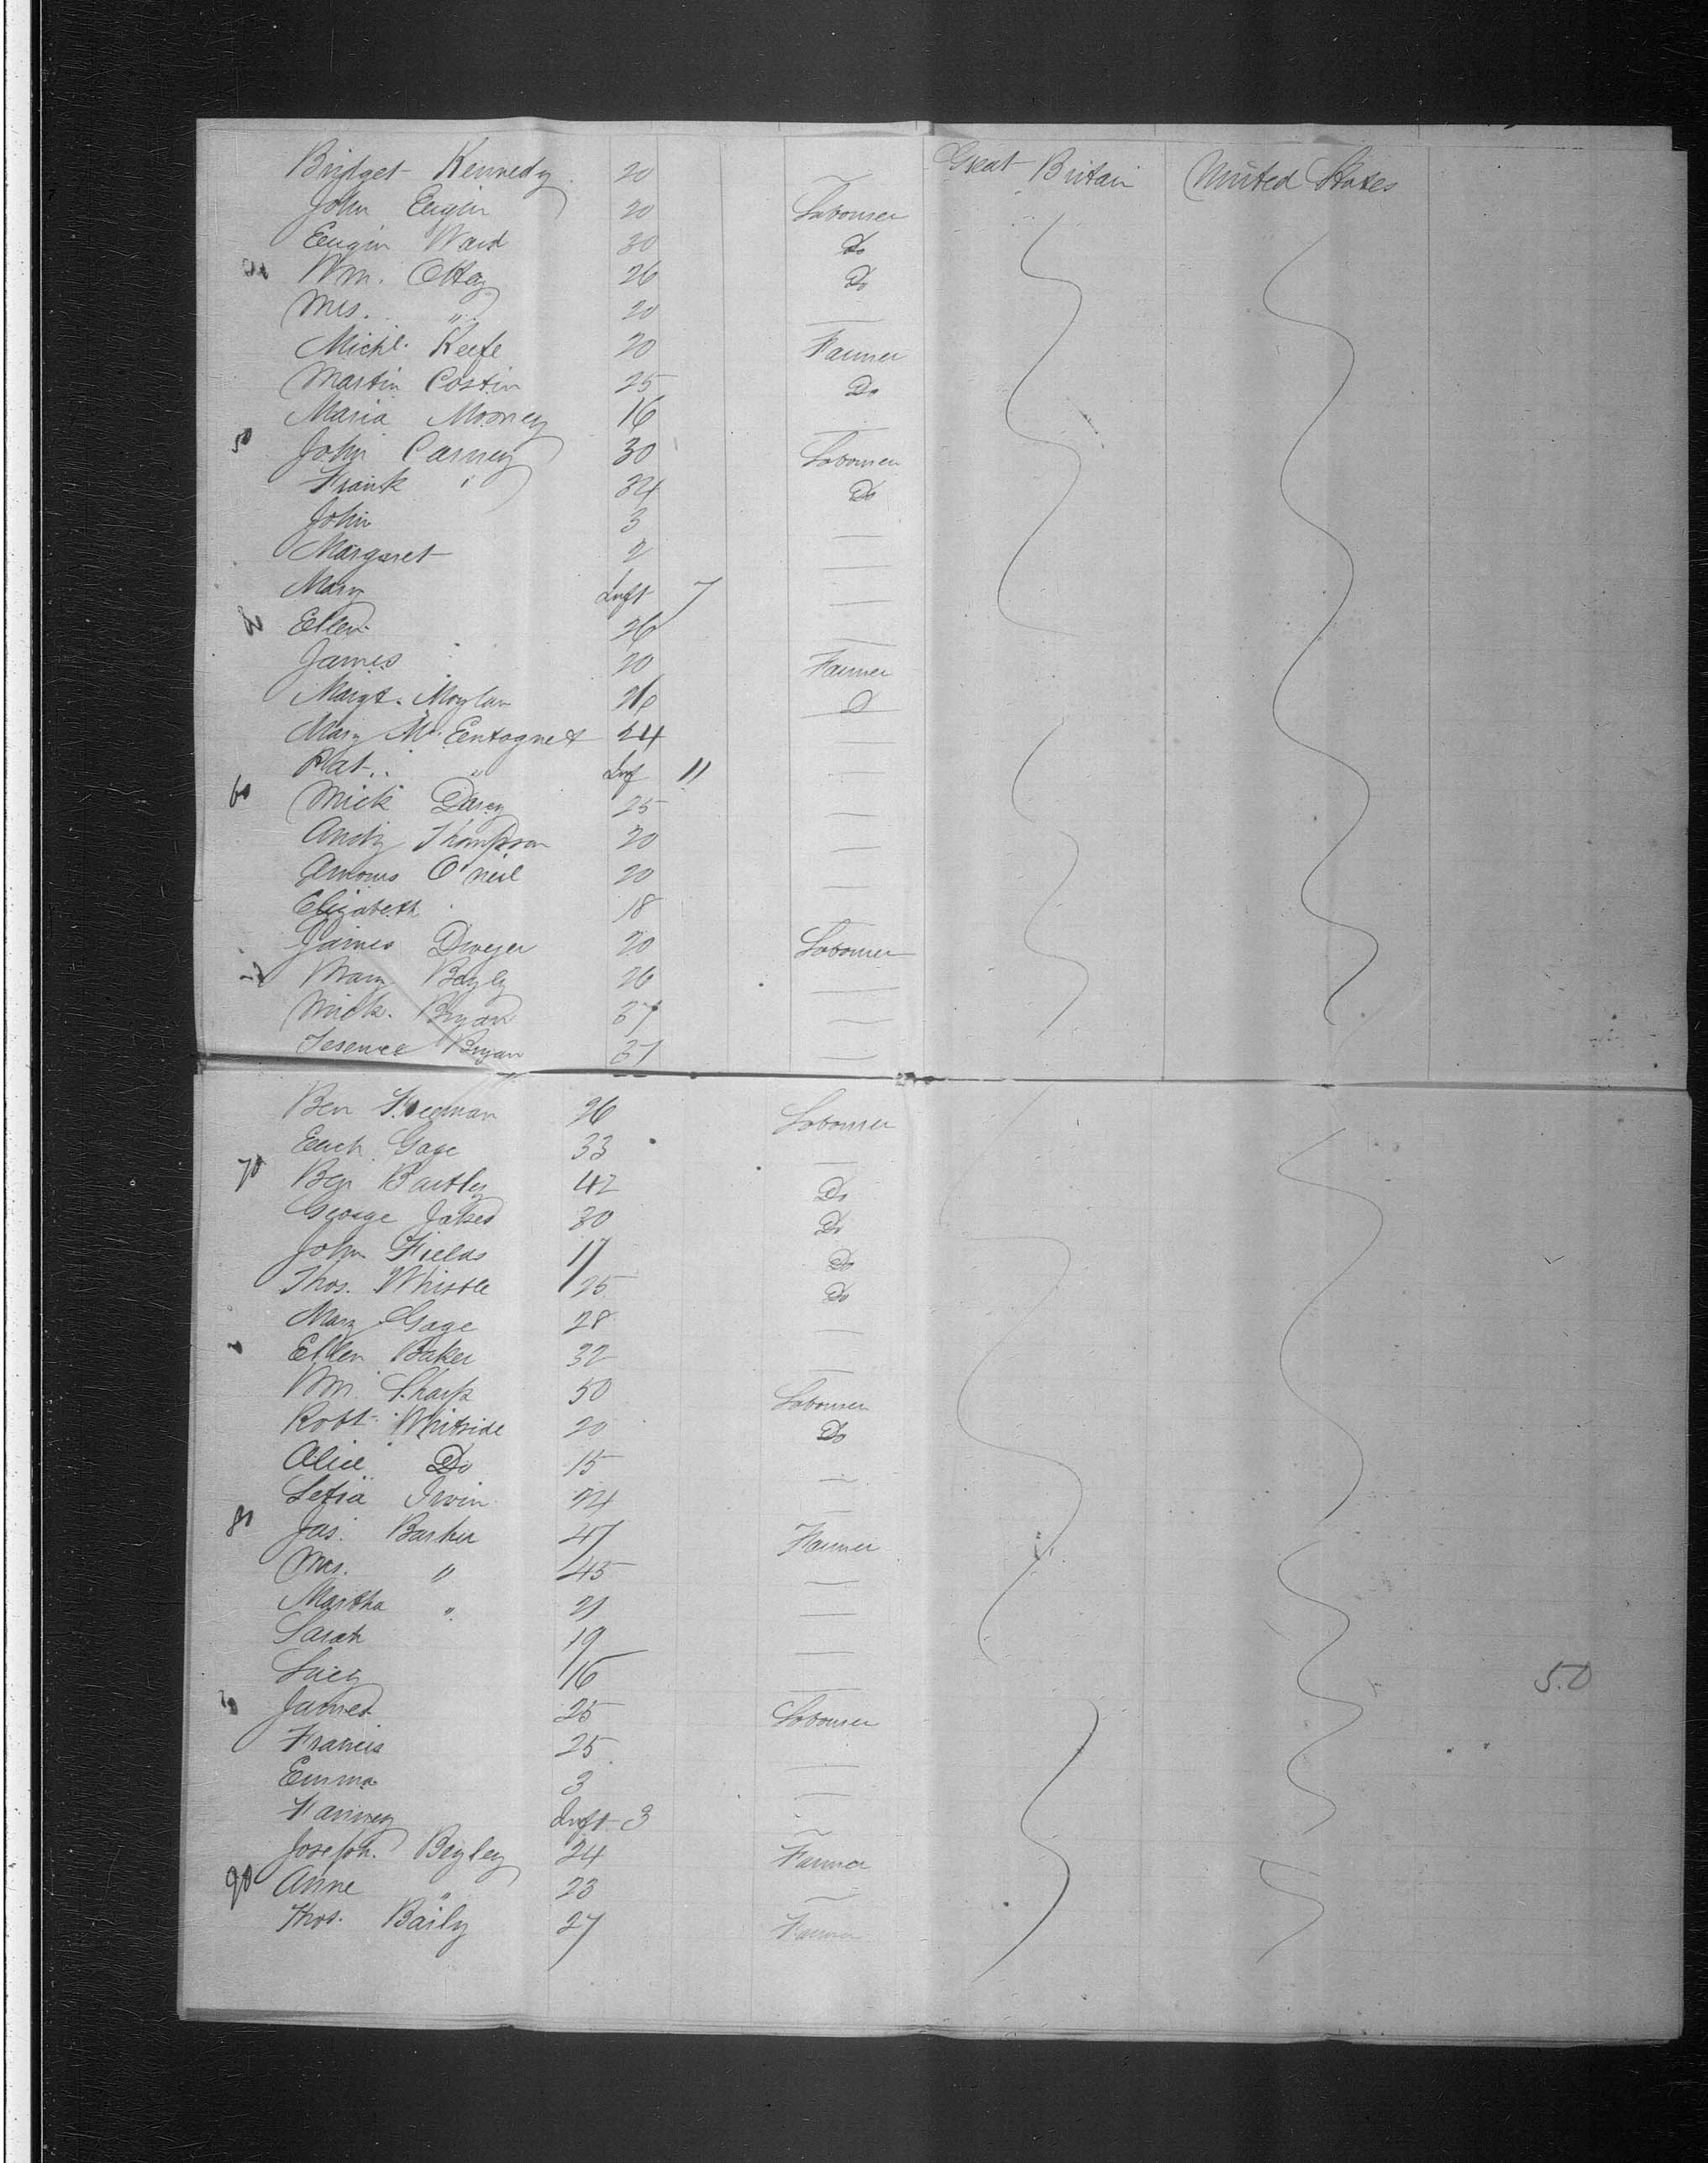 Bridget Kennedy 20 — Great Britain United States
John Eugin 20 Labourer
Eugin Ward 30 Do
Wm. Ottey 26 Do
Mrs. " 20 —
Michl. Keefe 20 Farmer
Martin Costin 25 Do
Maria Mooney 16 —
50 John Carney 30 Labourer
Frank " 34 Do
John 3 —
Margaret 2 —
Mary Inft 7 —
Ellen 26 —
James 20 Farmer
Margt. Moylan 26
Mary Mc Entagnet 24 —
Pat. " Inf 11 —
60 Mick Darcy 25 —
Andy Thompson 20 —
O'neil 20 —
Elizabeth 18
James Dwyer 20 Labourer
Mary Bayly 26 —
Mick. Bryan 37 —
Terence Bryan 37 —
Ben Freeman 26 Labourer
Gage 33 —
70 Ben Bartley 42 Do
George Jakes 30 Do
John Fields 17 Do
Thos. Whistle 25 Do
Mary Gage 28 —
Ellen Baker 32 —
Wm. Sharp 50 Labourer
Robt. Whitside 20 Do
Alice Do 15 —
Letia Irvin 24 —
80 Jas. Barker 47 Farmer
Mrs. " 45 —
Martha " 21 —
Sarah 19 —
Lucy 16 — 50
James 25 Labourer
Francis 25 —
Emma 3 —
Fanney Inft 3 —
Joseph. Beyley 24 Farmer
90 Anne " 23 —
Thos. Baily 27 Farmer